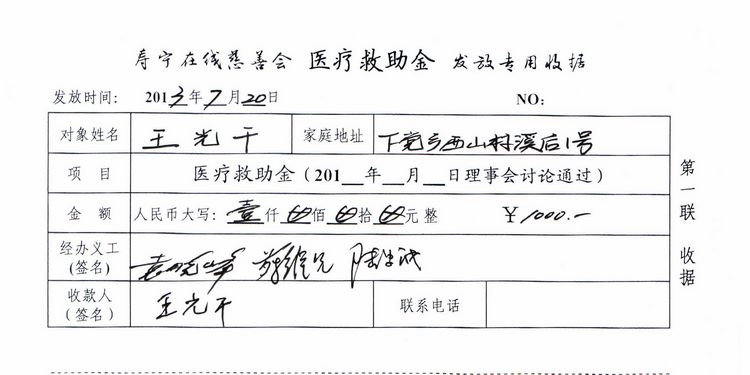 寿宁在线慈善会 医疗救助金 发放专用收据
发放时间: 2013年7月20日 NO:
对象姓名 王光干 家庭地址 下党乡西山村溪后1号
项 目 医疗救助金(201__年__月__日理事会讨论通过)
金 额 人民币大写: 壹仟 佰 拾 元 整 ¥1000.—
经办义工
(签名)
收款人 王光干 联系电话
(签名)
第一联 收据